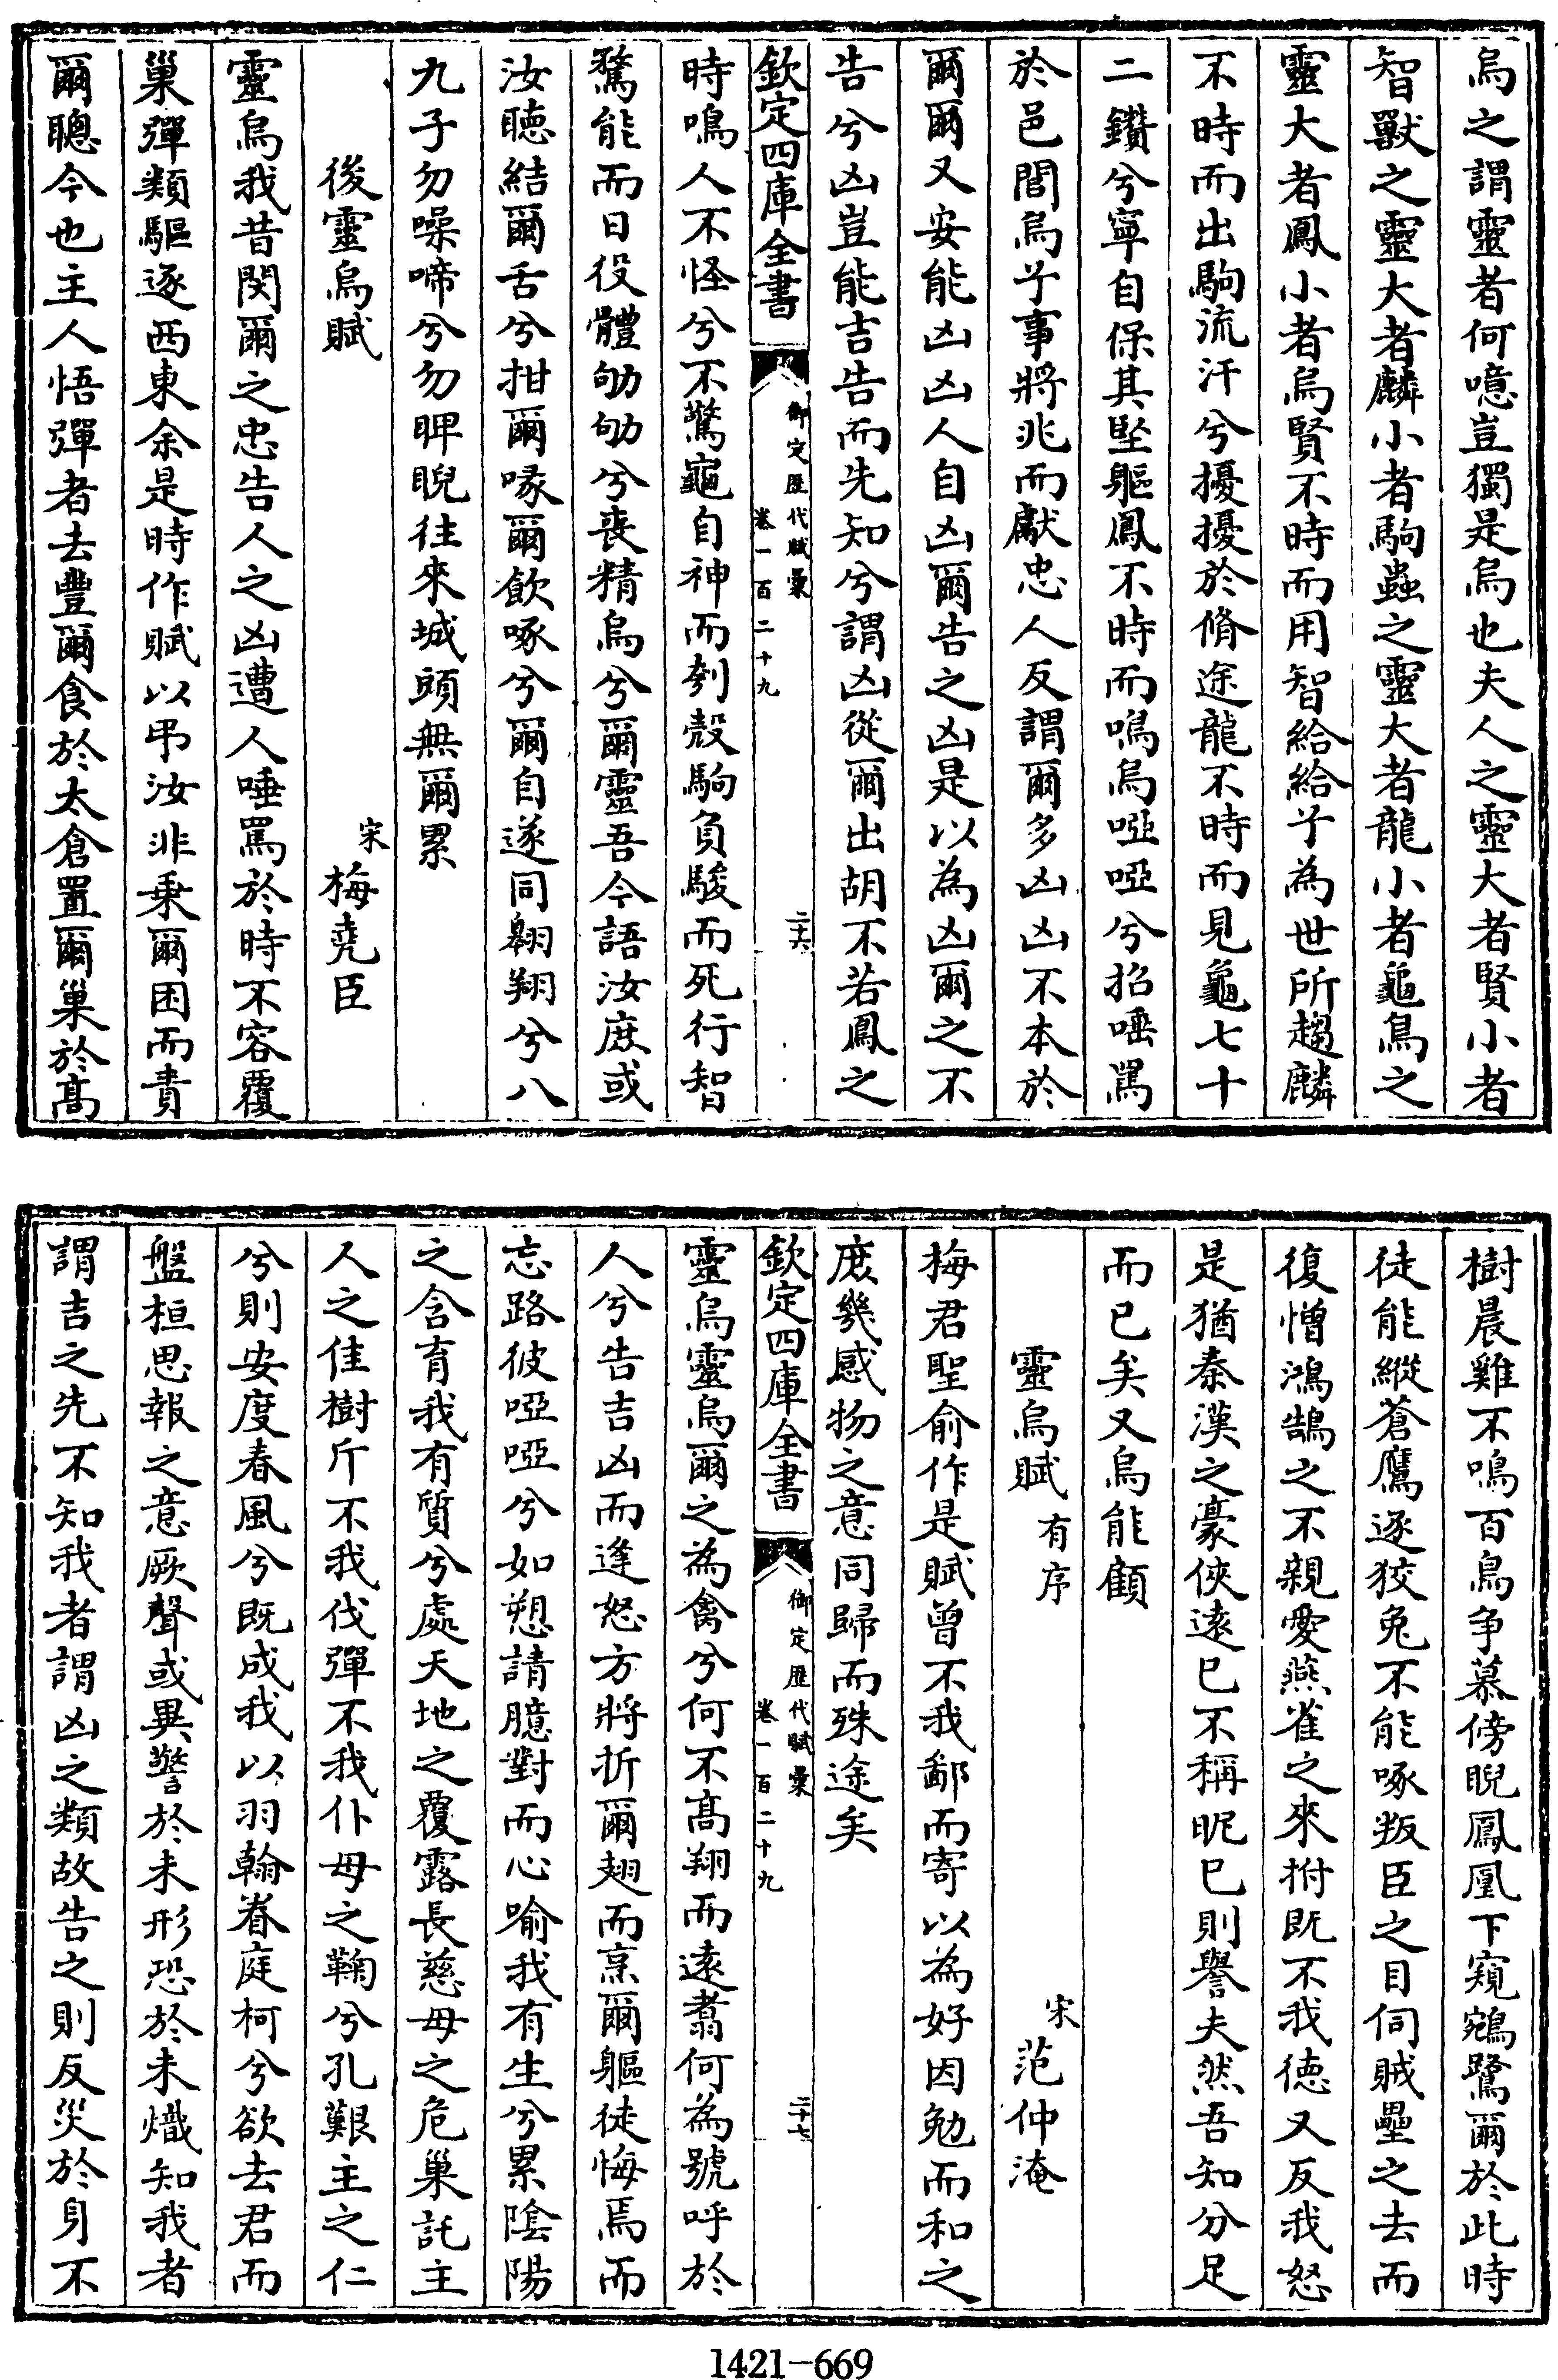 烏之謂靈者何噫豈獨是烏也夫人之靈大者賢小者
智獸之靈大者麟小者駒蟲之靈大者龍小者龜鳥之
靈大者鳳小者烏賢不時而用智給給兮為世所趨麟
不時而出駒流汗兮擾擾於脩途龍不時而見龜七十
二鑽兮寧自保其堅軀鳳不時而鳴烏啞啞兮招唾罵
於邑閭烏兮事將兆而獻忠人反謂爾多凶凶不本於
爾爾又安能凶凶人自凶爾告之凶是以為凶爾之不
告兮凶豈能吉告而先知兮謂凶從爾出胡不若鳳之
欽定四庫全書
御定歷代賦彙
卷一百二十九
二十六
時鳴人不怪兮不驚龜自神而刳殼駒負駿而死行智
騖能而日役體劬劬兮喪精烏兮爾靈吾今語汝庶或
汝聽結爾舌兮拑爾喙爾飲啄兮爾自遂同翱翔兮八
九子勿噪啼兮勿睥睨往來城頭無爾累
後靈烏賦
宋梅堯臣
靈烏我昔閔爾之忠告人之凶遭人唾罵於時不容覆
巢彈類驅逐西東余是時作賦以弔汝非乘爾困而責
爾聰今也主人悟彈者去豐爾食於太倉置爾巢於髙
樹晨雞不鳴百鳥争慕傍睨鳳凰下窺鵷鷺爾於此時
徒能縱蒼鷹逐狡兔不能啄叛臣之目伺賊壘之去而
復憎鴻鵠之不親愛燕雀之來拊既不我德又反我怒
是猶秦漢之豪俠遠已不稱昵已則譽夫然吾知分足
而已矣又烏能顧
靈烏賦有序
宋范仲淹
梅君聖俞作是賦曾不我鄙而寄以為好因勉而和之
庶幾感物之意同歸而殊途矣
欽定四庫全書
御定歷代賦彙
卷一百二十九
二十七
靈烏靈烏爾之為禽兮何不髙翔而遠翥何為號呼於
人兮告吉凶而逢怒方將折爾翅而烹爾軀徒悔焉而
忘路彼啞啞兮如愬請臆對而心喻我有生兮累陰陽
之含育我有質兮處天地之覆露長慈母之危巢託主
人之佳樹斤不我伐彈不我仆母之鞠兮孔艱主之仁
兮則安度春風兮既成我以羽翰眷庭柯兮欲去君而
盤桓思報之意厥聲或異警於未形恐於未熾知我者
謂吉之先不知我者謂凶之類故告之則反災於身不
1421—669